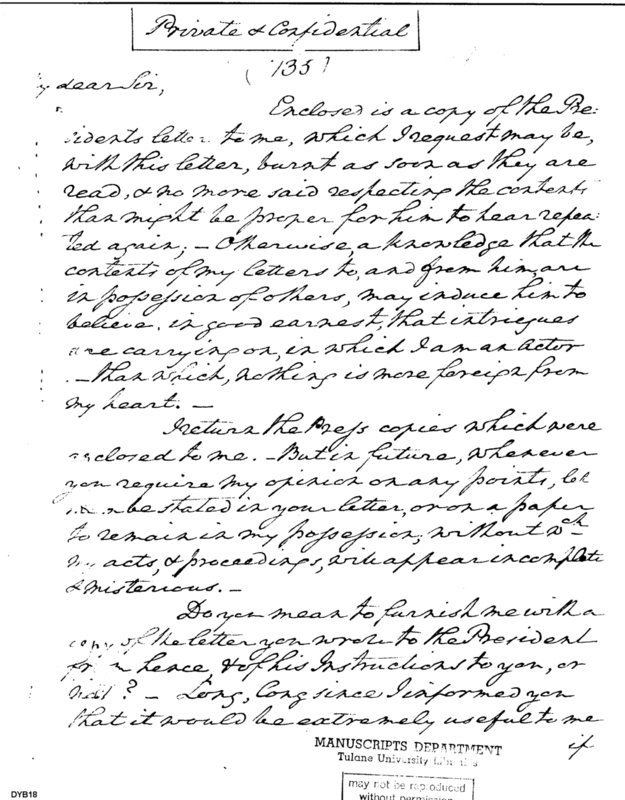 Private & Confidential
(135)
y dear Sir,
Enclosed is a copy of the Pre:
sidents letter to me, which I request may be,
with this letter, burnt as soon as they are
read, & no more said respecting the contents
than might be proper for him to hear repea:
ted again; – Otherwise, a knowledge that the
contents of my letters to, and from him, are
in possession of others, may induce him to
believe, in good earnest, that intriegues
are carrying on, in which I am an Actor
– than which, nothing is more foreign from
my heart. –
I return the Press copies which were
enclosed to me. – But in future, whenever
you require my opinion on any points, let
them be stated in your letter, or on a paper
to remain in my possession; without wch
my acts, & proceedings, will appear incomplete
& misterious. –
Do you mean to furnish me with a
copy of the letter you wrote to the President
from hence, & of his Instructions to you, or
not? – Long, long since I informed you
that it would be extremely useful to me
if
MANUSCRIPTS DEPARTMENT
Tulane University Libraries
may not be reproduced
without permission
DYB18